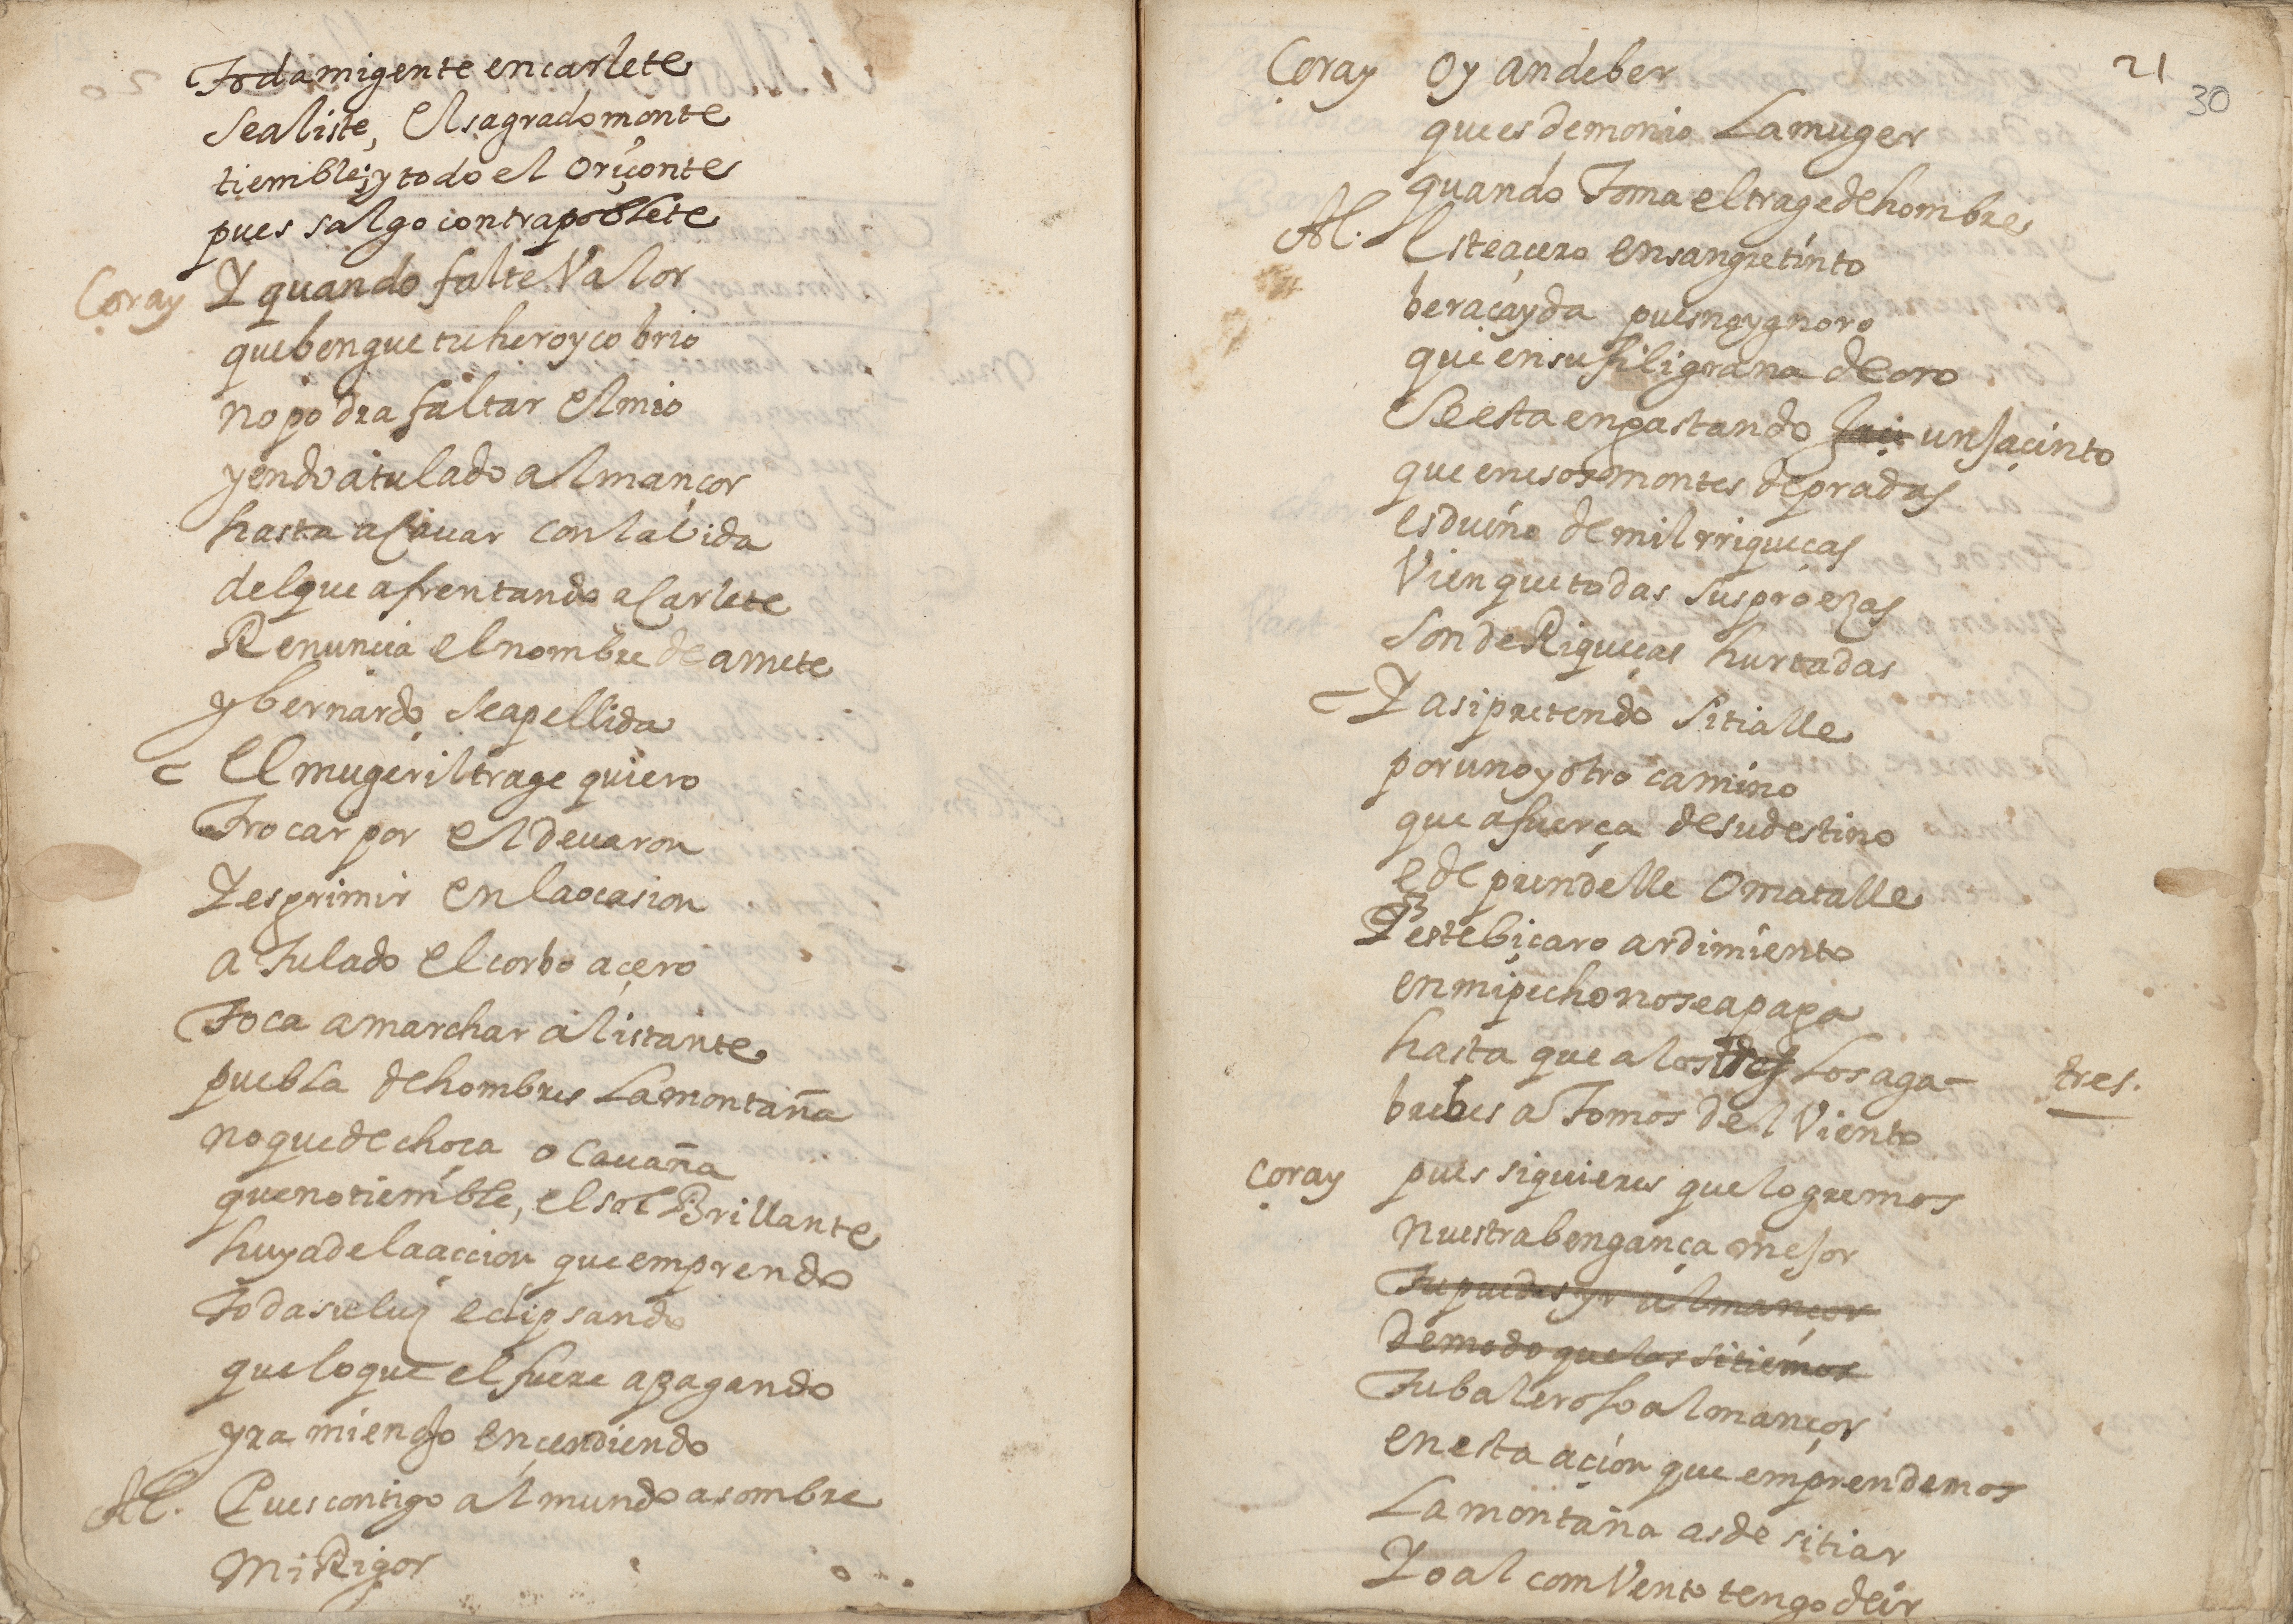 Toda mi gente en carlete
se aliste, El sagrado monte
tiemble; y todo el oriçonte
pues salgo contra poblete
Coray Y quando falte Valor
que bengue tu heroyco brio
no podra faltar El mio
yendo a tu lado almançor
hasta acauar con la bida
del que afrentando a Carlete
Renuncia el nombre de amete
y bernardo se apellida
El mugeril trage quiero
Trocar por el de varon
Y esprimir en la ocasion
a Tu lado el corbo açero
Toca a marchar al istante
puebla de hombres La montaña
no quede choça o Cauaña
que no tiemble, el sol Brillante
huya de la accion que emprendo
Toda su luz eclipsando
que lo que el fuere apagando
yra mi enojo ençendiendo
Al. Pues contigo al mundo asombre
Mi Rigor
21
30
Coray Oy an de ber
que es demonio La muger
quando Toma el trage de hombre
Al. Este açero en sangre tinto
bera çayda pues no ygnoro
que en su filigrana de oro
Se esta enpastando un Jaçinto
que en esos montes de pradas
es dueño de mil rriqueças
Vien que todas sus proezas
son de Riqueças hurtadas
Y asi pretendo sitialle
por uno y otro camino
que a fuerça de su destino
e de prendelle O matalle
Y este biçaro ardimiento
en mi pecho no se apaga
hasta que a los tres Los aga- tres.
brebes a Tomos del Viento
Coray pues si quieres que logremos
nuestra bengança mejor
Tu puedes yr almançor
De modo que los sitiemos
Tu baleroso almançor
en esta açion que emprendemos
La montaña as de sitiar
Yo al comVento tengo de ir